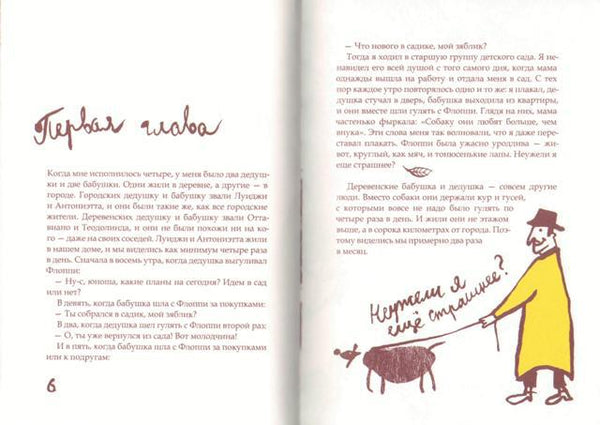 Первая глава
Когда мне исполнилось четыре, у меня было два дедуш-
ки и две бабушки. Одни жили в деревне, а другие — в
городе. Городских дедушку и бабушку звали Луиджи
и Антониэтта, и они были такие же, как все городские
жители. Деревенских дедушку и бабушку звали Отта-
виано и Теодолинда, и они не были похожи ни на ко-
го — даже на своих соседей. Луиджи и Антониэтта жили
в нашем доме, и мы виделись как минимум четыре раза
в день. Сначала в восемь утра, когда дедушка выгуливал
Флоппи:
— Ну-с, юноша, какие планы на сегодня? Идем в сад
или нет?
В девять, когда бабушка шла с Флоппи за покупками:
— Ты собрался в садик, мой зяблик?
В два, когда дедушка шел гулять с Флоппи второй раз:
— О, ты уже вернулся из сада! Вот молодчина!
И в пять, когда бабушка шла с Флоппи за покупками
или к подругам:
6
— Что нового в садике, мой зяблик?
Тогда я ходил в старшую группу детского сада. Я не-
навидел его всей душой с того самого дня, когда мама
однажды вышла на работу и отдала меня в сад. С тех
пор каждое утро повторялось одно и то же: я плакал, де-
душка стучал в дверь, бабушка выходила из квартиры,
и они вместе шли гулять с Флоппи. Глядя на них, мама
частенько фыркала: «Собаку они любят больше, чем
внука». Эти слова меня так волновали, что я даже пере-
ставал плакать. Флоппи была ужасно уродлива — жи-
вот, круглый, как мяч, и тонюсенькие лапы. Неужели я
еще страшнее?
Деревенские бабушка и дедушка — совсем другие
люди. Вместо собаки они держали кур и гусей,
с которыми вовсе не надо было гулять по
четыре раза в день. И жили они не этажом
выше, а в сорока километрах от города. Поэ-
тому виделись мы примерно два раза
в месяц.
Неужели я
ещё страшнее?